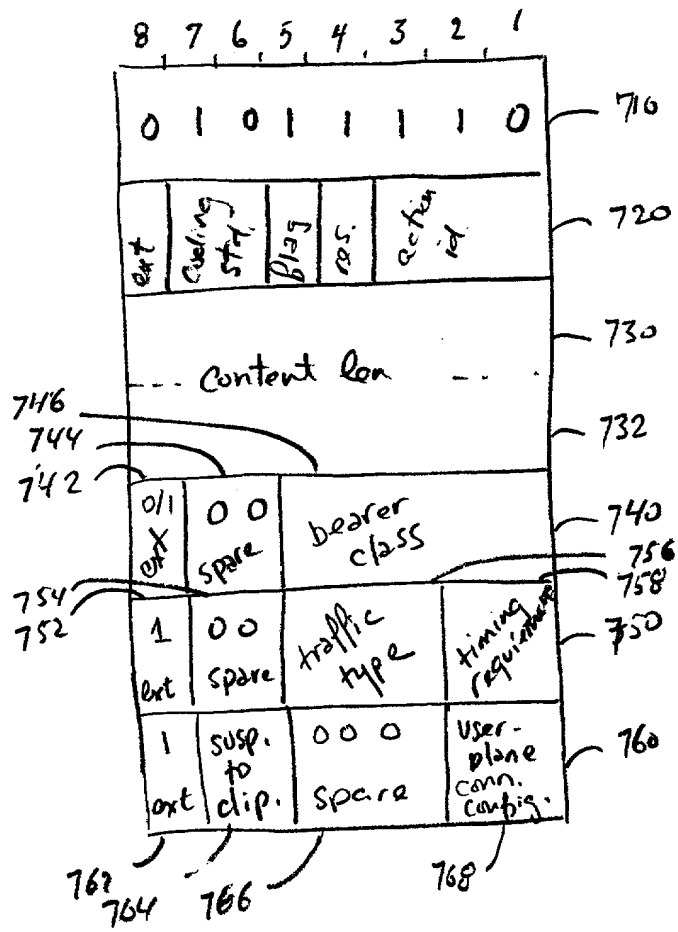 8 7 6 5 4 3 2 1
0 1 0 1 1 1 1 0
710
ext
Coding
std.
flag
res.
action
id
720
730
--- Content len - --
732
746
744
742
0/1
ext
0 0
spare
bearer
class
740
756
758
754
752
1
ext
0 0
spare
traffic
type
timing
750
1
ext
susp.
to
clip.
0 0 0
spare
user-
plane
conn.
config.
760
762
764
766
768